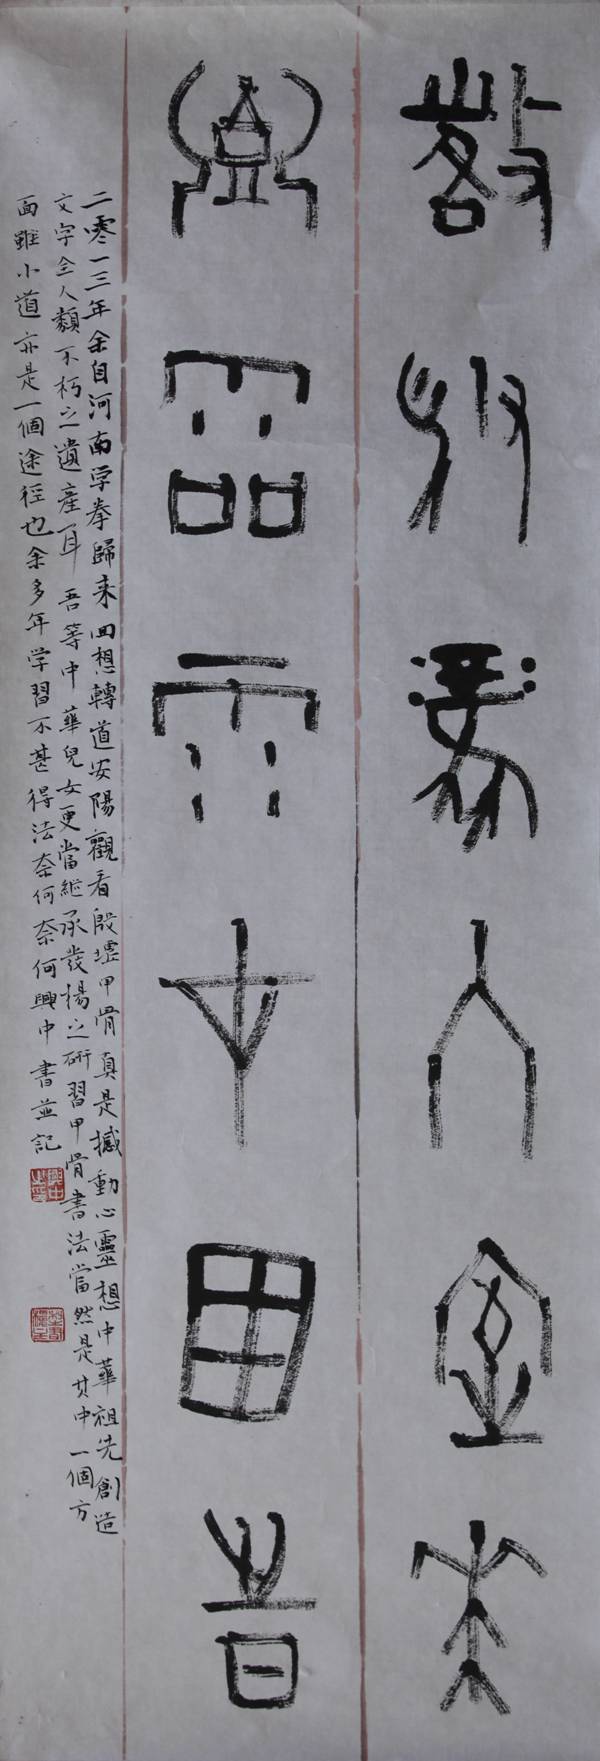 入金
雨田
二零一三年余自河南学拳歸来回想轉道安陽觀看殷墟甲骨真是撼動心靈想中華祖先創造
文字全人類不朽之遺産耳吾等中華兒女更當継承發揚之研習甲骨書法當然是其中一個方
面雖小道亦是一個途徑也余多年学習不甚得法奈何奈何興中書並記